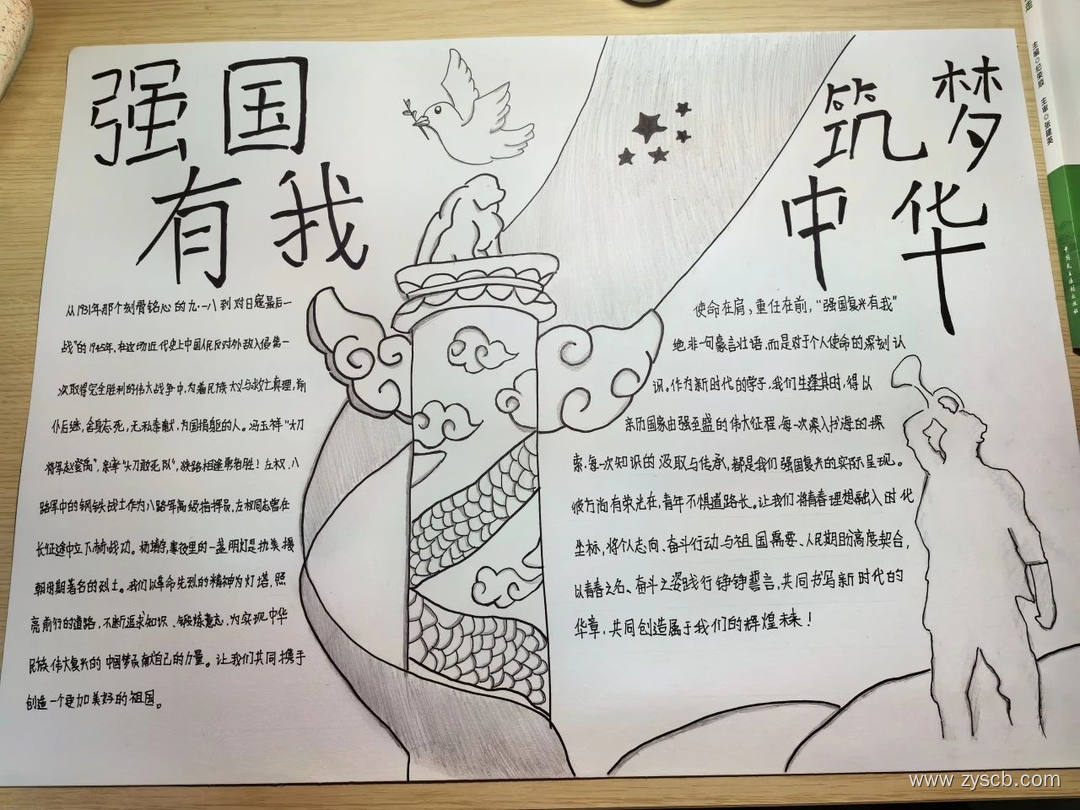 强国
有我
筑梦
中华
从1931年那个刻骨铭心的九·一八到对日寇最后一
战"的1945年,在这场近代史上中国人民反对外敌入侵第一
次取得完全胜利的伟大战争中,为着民族大义与救亡真理,前
仆后继,舍身忘死,无私奉献,为国捐躯的人。冯玉祥"大刀
将军赵登禹",亲率"大刀敢死队",狭路相逢勇者胜!左权,八
路军中的钢铁战士作为八路军高级指挥员,左权同志曾在
长征途中立下赫赫战功。杨靖宇,寒夜里的一盏明灯是抗美援
朝时期著名的烈士。我们以革命先烈的精神为灯塔,照
亮前行的道路,不断追求知识、锻炼意志,为实现中华
民族伟大复兴的中国梦贡献自己的力量。让我们共同携手
创造一个更加美好的祖国。
使命在肩,重任在前,"强国复兴有我"
绝非一句豪言壮语,而是对于个人使命的深刻认
识。作为新时代的学子,我们生逢其时,得以
亲历国家由强至盛的伟大征程,每一次深入书海的探
索,每一次知识的汲取与传承,都是我们强国复兴的实际呈现。
彼方尚有荣光在,青年不惧道路长。让我们将青春理想融入时代
坐标,将个人志向、奋斗行动与祖国需要、人民期盼高度契合,
以青春之名、奋斗之姿践行铮铮誓言,共同书写新时代的
华章,共同创造属于我们的辉煌未来!
主编◎纪荣顺 主审◎张建英
www.zyscb.com